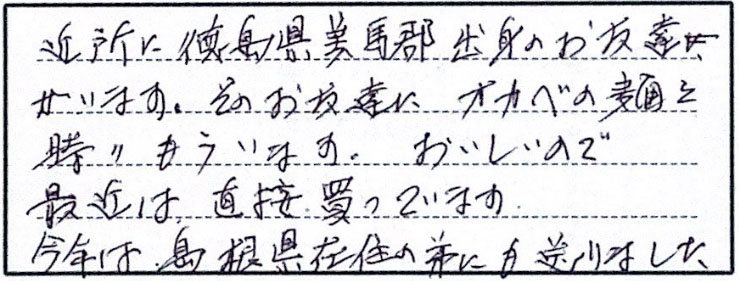 近所に徳島県美馬郡出身のお友達
がいます。そのお友達に オカベの麺を
時々もらいます。 おいしいので
最近は、直接買っています。
今年は、島根県在住の弟にも送りました。